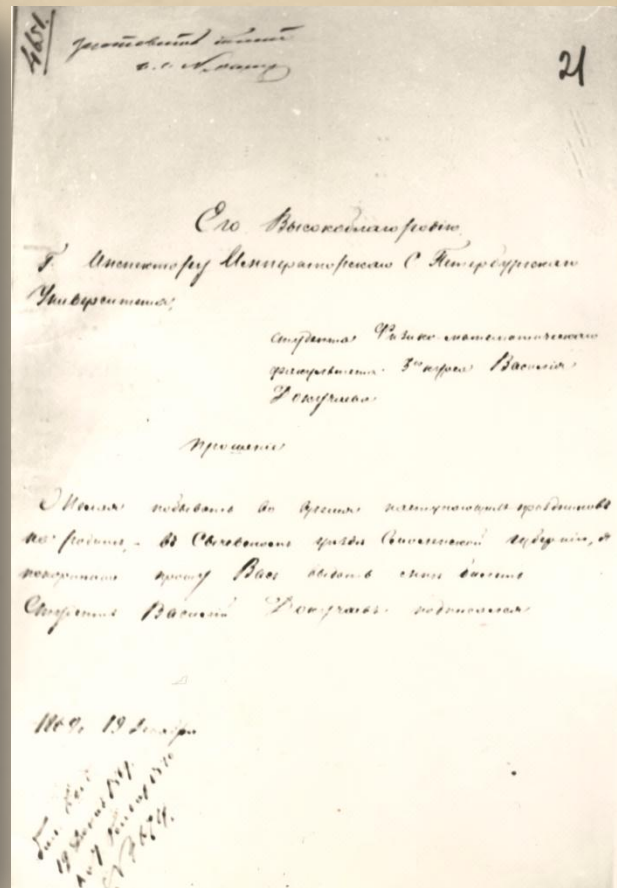 4651.
21
Его Высокоблагородію
Г. Инспектору Императорскаго С Петербургскаго
Университета,
студента Физико-математическаго
факультета 3го курса Василія
Докучаева
Прошеніе
Желая побывать во время наступающихъ праздниковъ
на родинѣ, – въ Сычевскомъ уѣздѣ Смоленской губерніи, я
покорнѣйше прошу Васъ выдать мнѣ билетъ
Студентъ Василій Докучаевъ подписался
1869. 19 Декабря